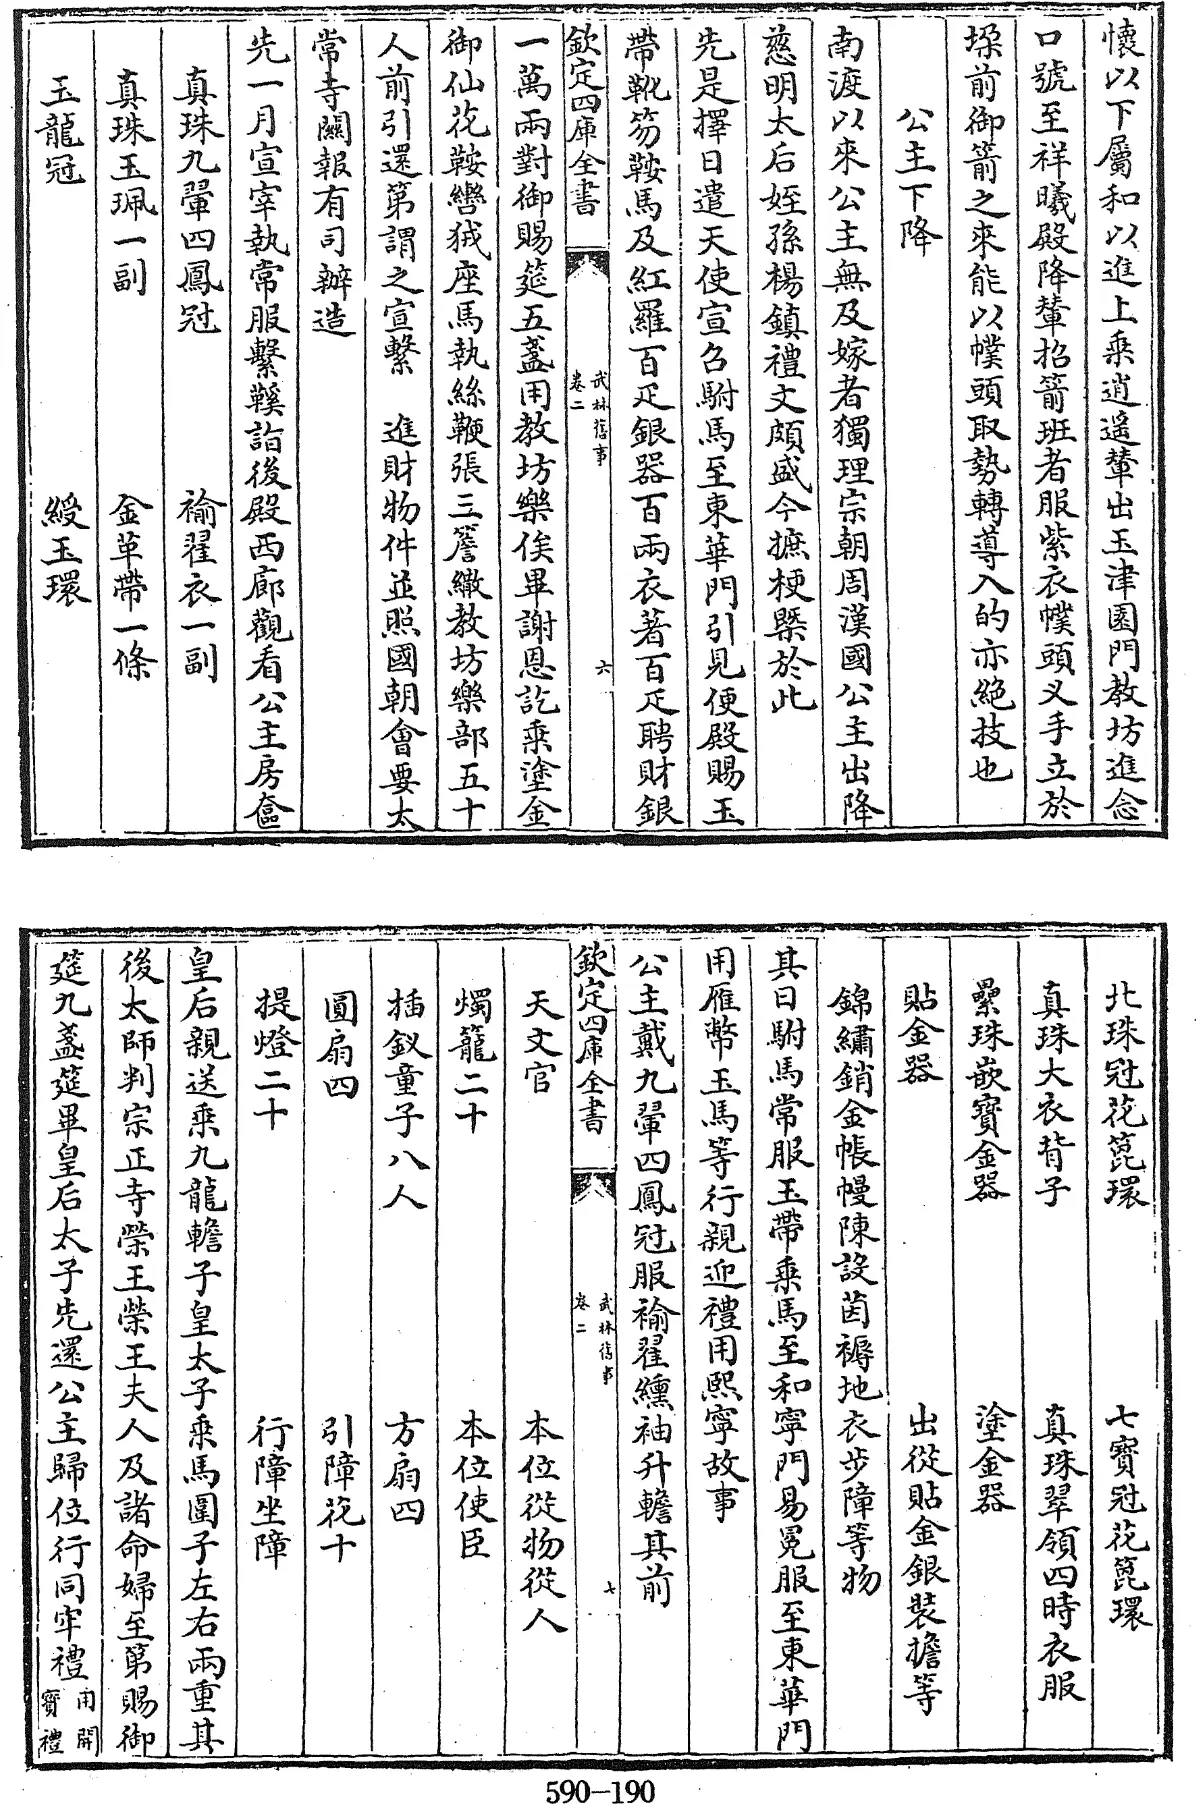 懷以下屬和以進上乘逍遥輦出玉津園門教坊進念
口號至祥曦殿降輦招箭班者服紫衣幞頭义手立於
垜前御箭之來能以幞頭取勢轉導入的亦絶技也
公主下降
南渡以來公主無及嫁者獨理宗朝周漢國公主出降
慈明太后姪孫楊鎮禮文頗盛今摭梗槩於此
先是擇日遣天使宣召駙馬至東華門引見便殿賜玉
帶靴笏鞍馬及紅羅百疋銀器百兩衣著百疋聘財銀
欽定四庫全書
武林舊事
卷二
六
一萬兩對御賜筵五盞用教坊樂俟畢謝恩訖乘塗金
御仙花鞍轡狨座馬執絲鞭張三簷繖教坊樂部五十
人前引還第謂之宣繫　進財物件並照國朝會要太
常寺關報有司辦造
先一月宣宰執常服繫鞵詣後殿西廊觀看公主房奩
真珠九翬四鳳冠　褕翟衣一副
真珠玉珮一副　金革帶一條
玉龍冠　綬玉環
北珠冠花箆環　七寶冠花箆環
真珠大衣背子　真珠翠領四時衣服
纍珠嵌寶金器　塗金器
貼金器　出從貼金銀裝擔等
錦繡銷金帳幔陳設茵褥地衣步障等物
其日駙馬常服玉帶乘馬至和寧門易冕服至東華門
用雁幣玉馬等行親迎禮用熙寧故事
公主戴九翬四鳳冠服褕翟纁袖升轎其前
欽定四庫全書
武林舊事
卷二
七
天文官　本位從物從人
燭籠二十　本位使臣
插釵童子八人　方扇四
圓扇四　引障花十
提燈二十　行障坐障
皇后親送乘九龍轎子皇太子乘馬圍子左右兩重其
後太師判宗正寺榮王榮王夫人及諸命婦至第賜御
筵九盞筵畢皇后太子先還公主歸位行同牢禮用開
寶禮
590-190